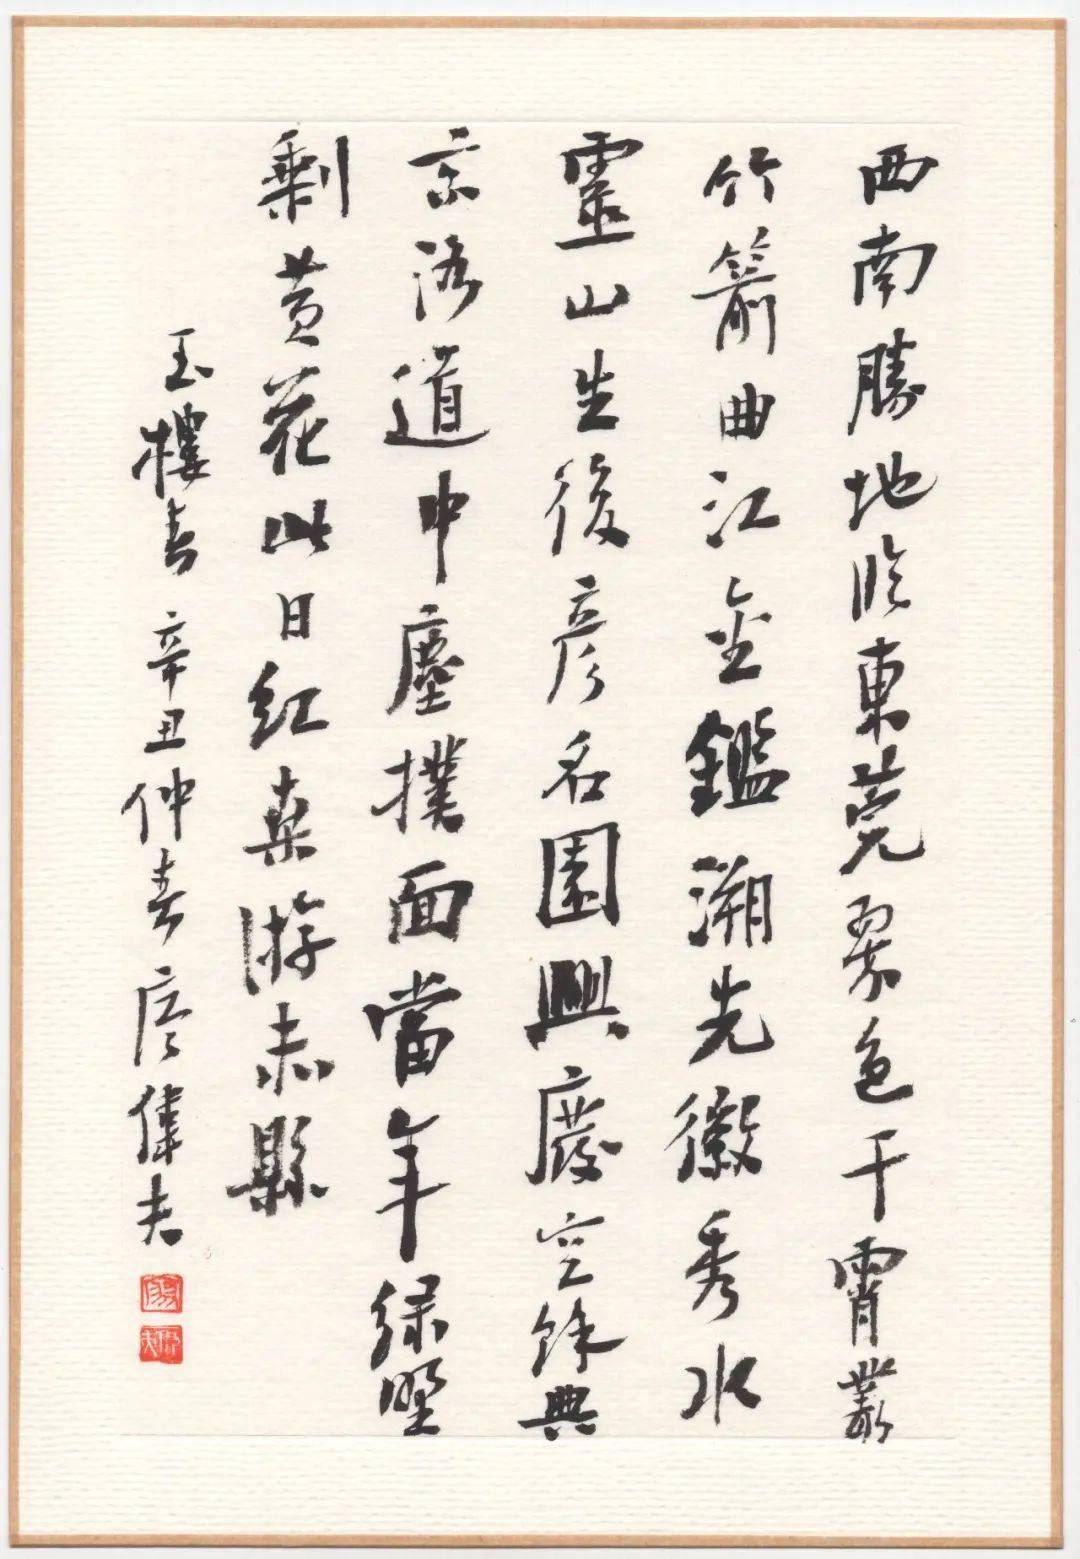 西南勝地臨東莞翠色干霄叢
竹箭曲江金鑑溯先徽秀水
靈山生後彥名園興廢空餘典
京洛道中塵撲面當年綠野
剩黃花此日紅桑游赤縣
玉樓春 辛丑仲春 偉夫